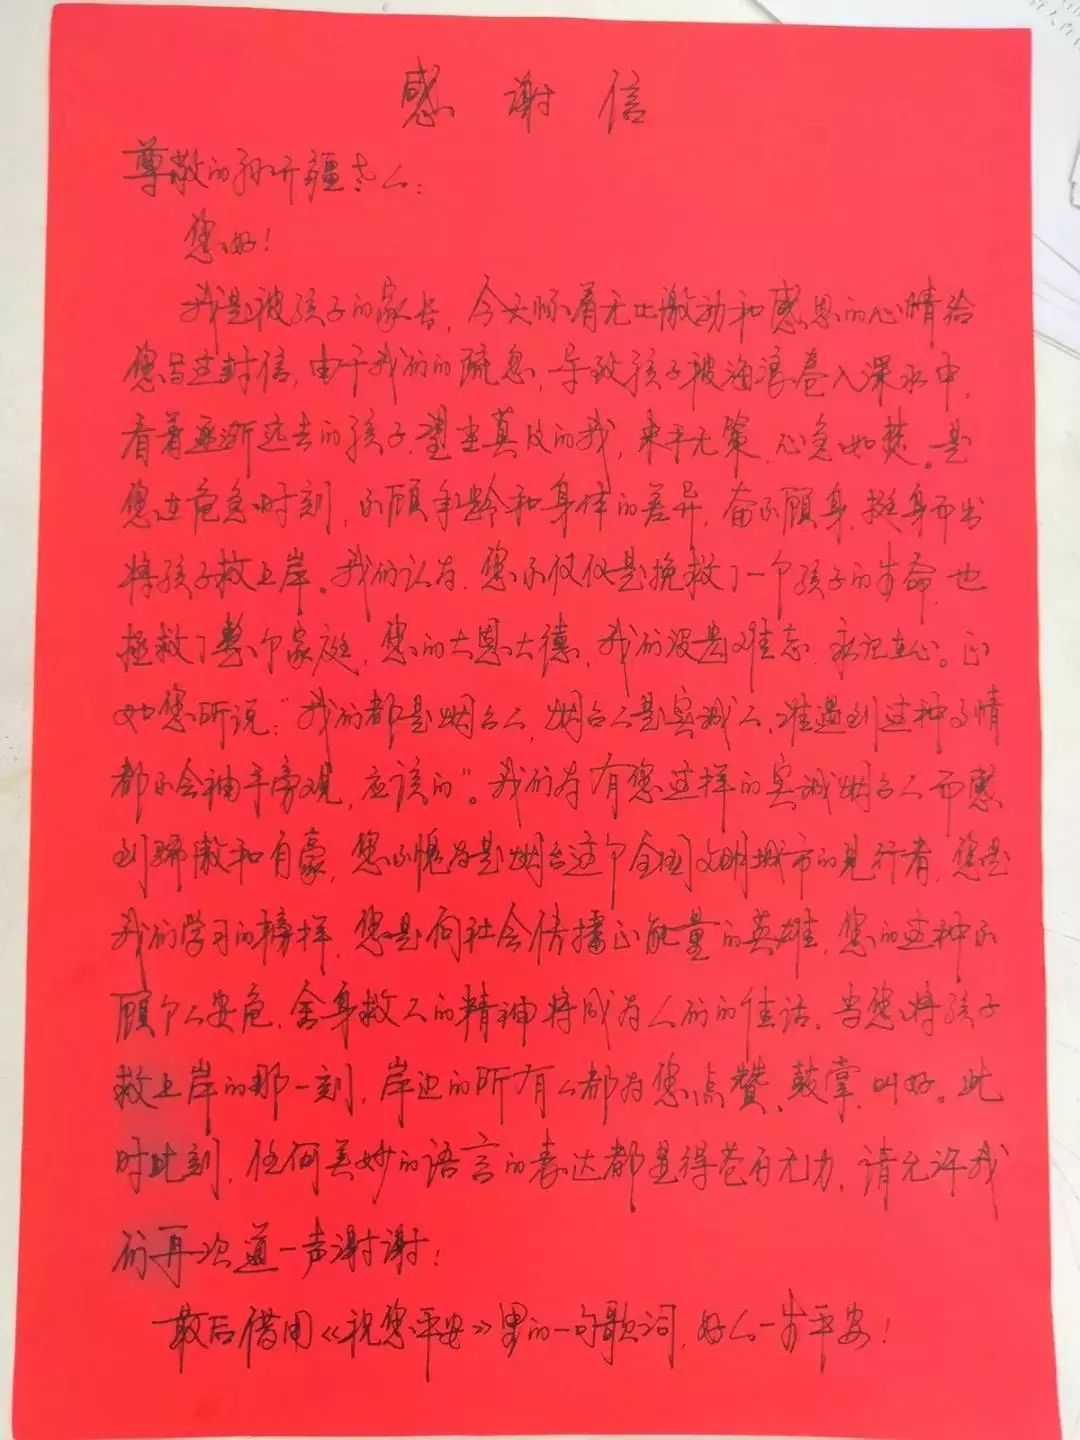 感谢信
尊敬的孙开疆老人：
您好！
我是被孩子的家长，今天怀着无比激动和感恩的心情给
您写这封信，由于我们的疏忽，导致孩子被海浪卷入深水中，
看着逐渐远去的孩子，望尘莫及的我，束手无策，心急如焚。是
您在危急时刻，不顾年龄和身体的差异，奋不顾身，挺身而出
将孩子救上岸。我们认为，您不仅仅是挽救了一个孩子的生命，也
拯救了整个家庭，您的大恩大德，我们没齿难忘，永记在心。正
如您所说："我们都是烟台人，烟台人是实诚人，谁遇到这种事情
都不会袖手旁观，应该的"。我们为有您这样的实诚烟台人而感
到骄傲和自豪，您不愧为是烟台这个全国文明城市的见行者，您是
我们学习的榜样，您是向社会传播正能量的英雄，您的这种不
顾个人安危，舍身救人的精神将成为人们的佳话。当您将孩子
救上岸的那一刻，岸边的所有人都为您点赞、鼓掌、叫好。此
时此刻，任何美妙的语言的表达都显得苍白无力，请允许我
们再次道一声谢谢！
最后借用《祝您平安》里的一句歌词，好人一生平安！